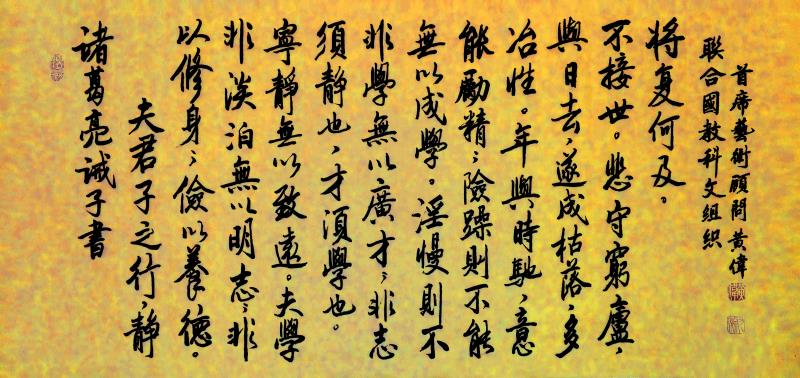 諸葛亮誡子書
夫君子之行,靜
以修身,儉以養德。
非淡泊無以明志,非
寧靜無以致遠。夫學
須靜也,才須學也。
非學無以廣才,非志
無以成學。淫慢則不
能勵精,險躁則不能
冶性。年與時馳,意
與日去,遂成枯落,多
不接世。悲守窮廬,
將复何及。
聯合國教科文組織
首席藝術顧問黃偉